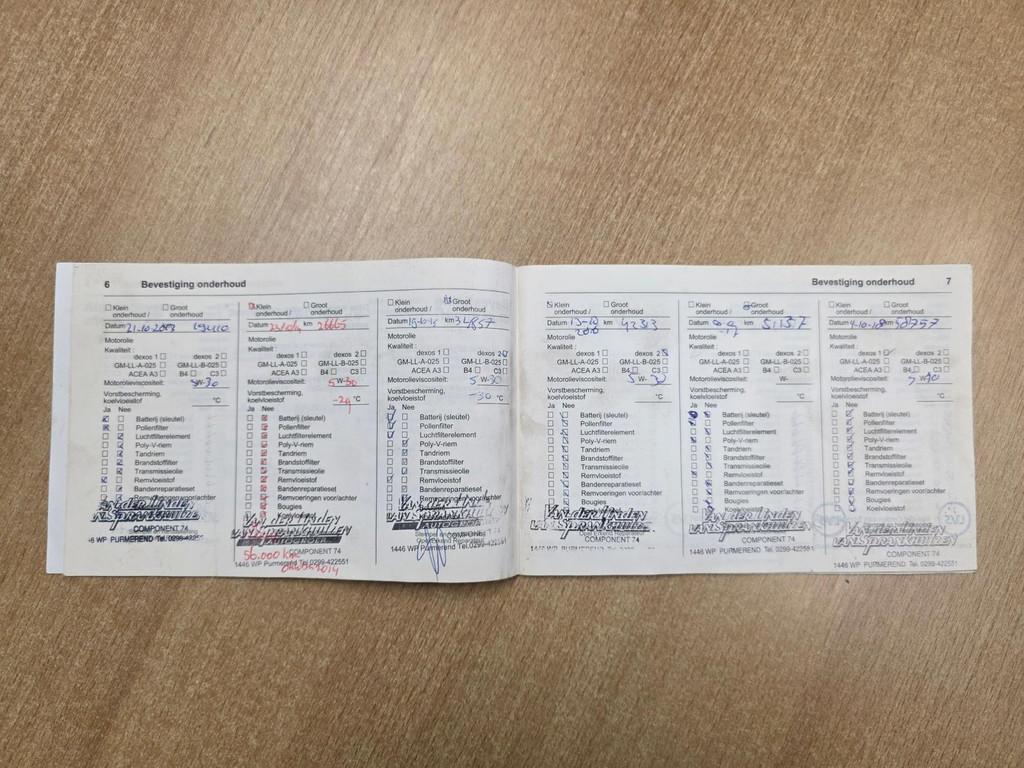 6 Bevestiging onderhoud
Klein onderhoud / Groot onderhoud
Datum 21-10-2013
Motorolie
Kwaliteit :
dexos 1 dexos 2
GM-LL-A-025 GM-LL-B-025
ACEA A3 B4 C3
Motorolieviscositeit: 5W-30
Vorstbescherming,
koelvloeistof °C
Ja Nee
Batterij (sleutel)
Pollenfilter
Luchtfilterelement
Poly-V-riem
Tandriem
Brandstoffilter
Transmissieolie
Remvloeistof
Bandenreparatieset
Remvoeringen voor/achter
VAN DER LINDEN
VAN SPRANKHUIZEN
COMPONENT 74
WP PURMEREND Tel. 0299-422551
Klein onderhoud / Groot onderhoud
Datum km 26665
Motorolie
Kwaliteit :
dexos 1 dexos 2
GM-LL-A-025 GM-LL-B-025
ACEA A3 B4 C3
Motorolieviscositeit: 5W-30
Vorstbescherming,
koelvloeistof -29 °C
Ja Nee
Batterij (sleutel)
Pollenfilter
Luchtfilterelement
Poly-V-riem
Tandriem
Brandstoffilter
Transmissieolie
Remvloeistof
Bandenreparatieset
Remvoeringen voor/achter
Bougies
Koelvloeistof
VAN DER LINDEN
VAN SPRANKHUIZEN
COMPONENT 74
56.000 km
1446 WP Purmerend Tel. 0299-422551
2014
Klein onderhoud / Groot onderhoud
Datum km 34857
Motorolie
Kwaliteit :
dexos 1 dexos 2
GM-LL-A-025 GM-LL-B-025
ACEA A3 B4 C3
Motorolieviscositeit: 5W-30
Vorstbescherming,
koelvloeistof -30 °C
Ja Nee
Batterij (sleutel)
Pollenfilter
Luchtfilterelement
Poly-V-riem
Tandriem
Brandstoffilter
Transmissieolie
Remvloeistof
Bandenreparatieset
Remvoeringen voor/achter
VAN DER LINDEN
VAN SPRANKHUIZEN
1446 WP Purmerend Tel. 0299-422551
Bevestiging onderhoud 7
Klein onderhoud / Groot onderhoud
Datum 13-10 2016 km 42313
Motorolie
Kwaliteit :
dexos 1 dexos 2
GM-LL-A-025 GM-LL-B-025
ACEA A3 B4 C3
Motorolieviscositeit: 5W-30
Vorstbescherming,
koelvloeistof °C
Ja Nee
Batterij (sleutel)
Pollenfilter
Luchtfilterelement
Poly-V-riem
Tandriem
Brandstoffilter
Transmissieolie
Remvloeistof
Bandenreparatieset
Remvoeringen voor/achter
Bougies
VAN DER LINDEN
VAN SPRANKHUIZEN
Opel Erkend Reparateur
Klein onderhoud / Groot onderhoud
Datum km 51137
Motorolie
Kwaliteit :
dexos 1 dexos 2
GM-LL-A-025 GM-LL-B-025
ACEA A3 B4 C3
Motorolieviscositeit: W-
Vorstbescherming,
koelvloeistof °C
Ja Nee
Batterij (sleutel)
Pollenfilter
Luchtfilterelement
Poly-V-riem
Tandriem
Brandstoffilter
Transmissieolie
Remvloeistof
Bandenreparatieset
Remvoeringen voor/achter
Bougies
Koelvloeistof
VAN DER LINDEN
VAN SPRANKHUIZEN
COMPONENT 74
1446 WP PURMEREND Tel. 0299-422551
Klein onderhoud / Groot onderhoud
Datum 4-10-18 km 58757
Motorolie
Kwaliteit :
dexos 1 dexos 2
GM-LL-A-025 GM-LL-B-025
ACEA A3 B4 C3
Motorolieviscositeit:
Vorstbescherming,
koelvloeistof °C
Ja Nee
Batterij (sleutel)
Pollenfilter
Luchtfilterelement
Poly-V-riem
Tandriem
Brandstoffilter
Transmissieolie
Remvloeistof
Bandenreparatieset
Remvoeringen voor/achter
Bougies
Koelvloeistof
VAN DER LINDEN
VAN SPRANKHUIZEN
COMPONENT 74
1446 WP PURMEREND Tel. 0299-422551